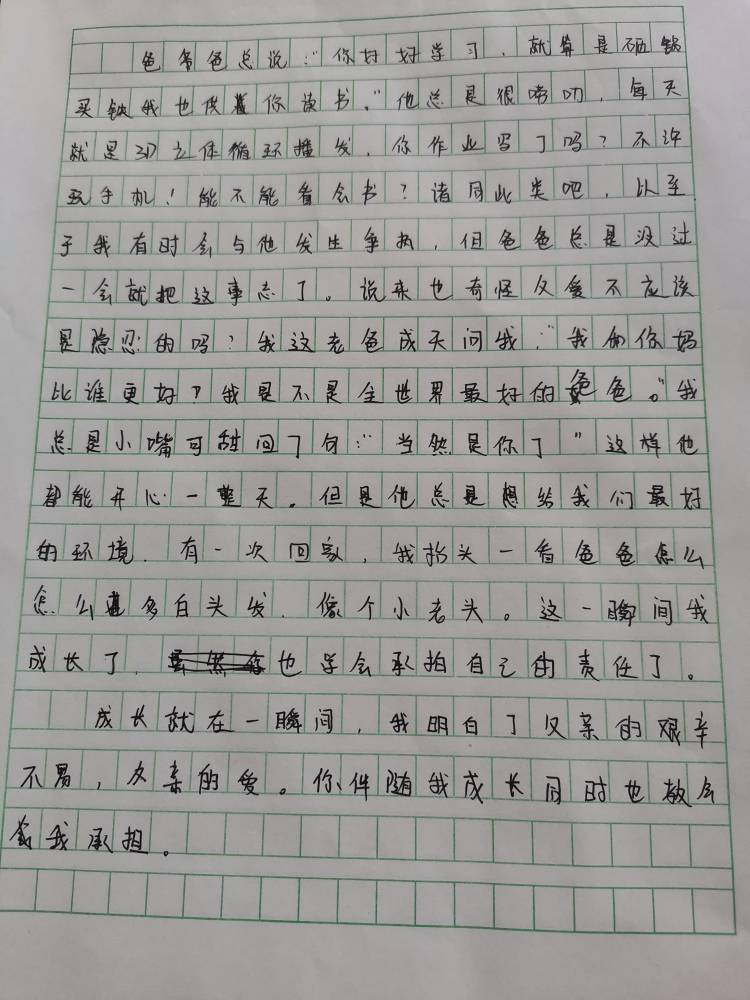 爸爸爸总说：“你好好学习，就算是砸锅
买铁我也供着你读书。”他总是很唠叨，每天
就是3D立体循环播发，你作业写了吗？不许
玩手机！能不能看会书？诸同此类吧，以至
于我有时会与他发生争执，但爸爸总是没过
一会就把这事忘了。说来也奇怪父爱不应该
是隐忍的吗？我这老爸成天问我：“我和你妈
比谁更好？我是不是全世界最好的爸爸。”我
总是小嘴可甜回了句：“当然是你了”这样他
都能开心一整天。但是他总是想给我们最好
的环境，有一次回家，我抬头一看爸爸怎么
怎么这多白头发，像个小老头。这一瞬间我
成长了，也学会承担自己的责任了。
成长就在一瞬间，我明白了父亲的艰辛
不易，父亲的爱。你伴随我成长同时也教会
我承担。